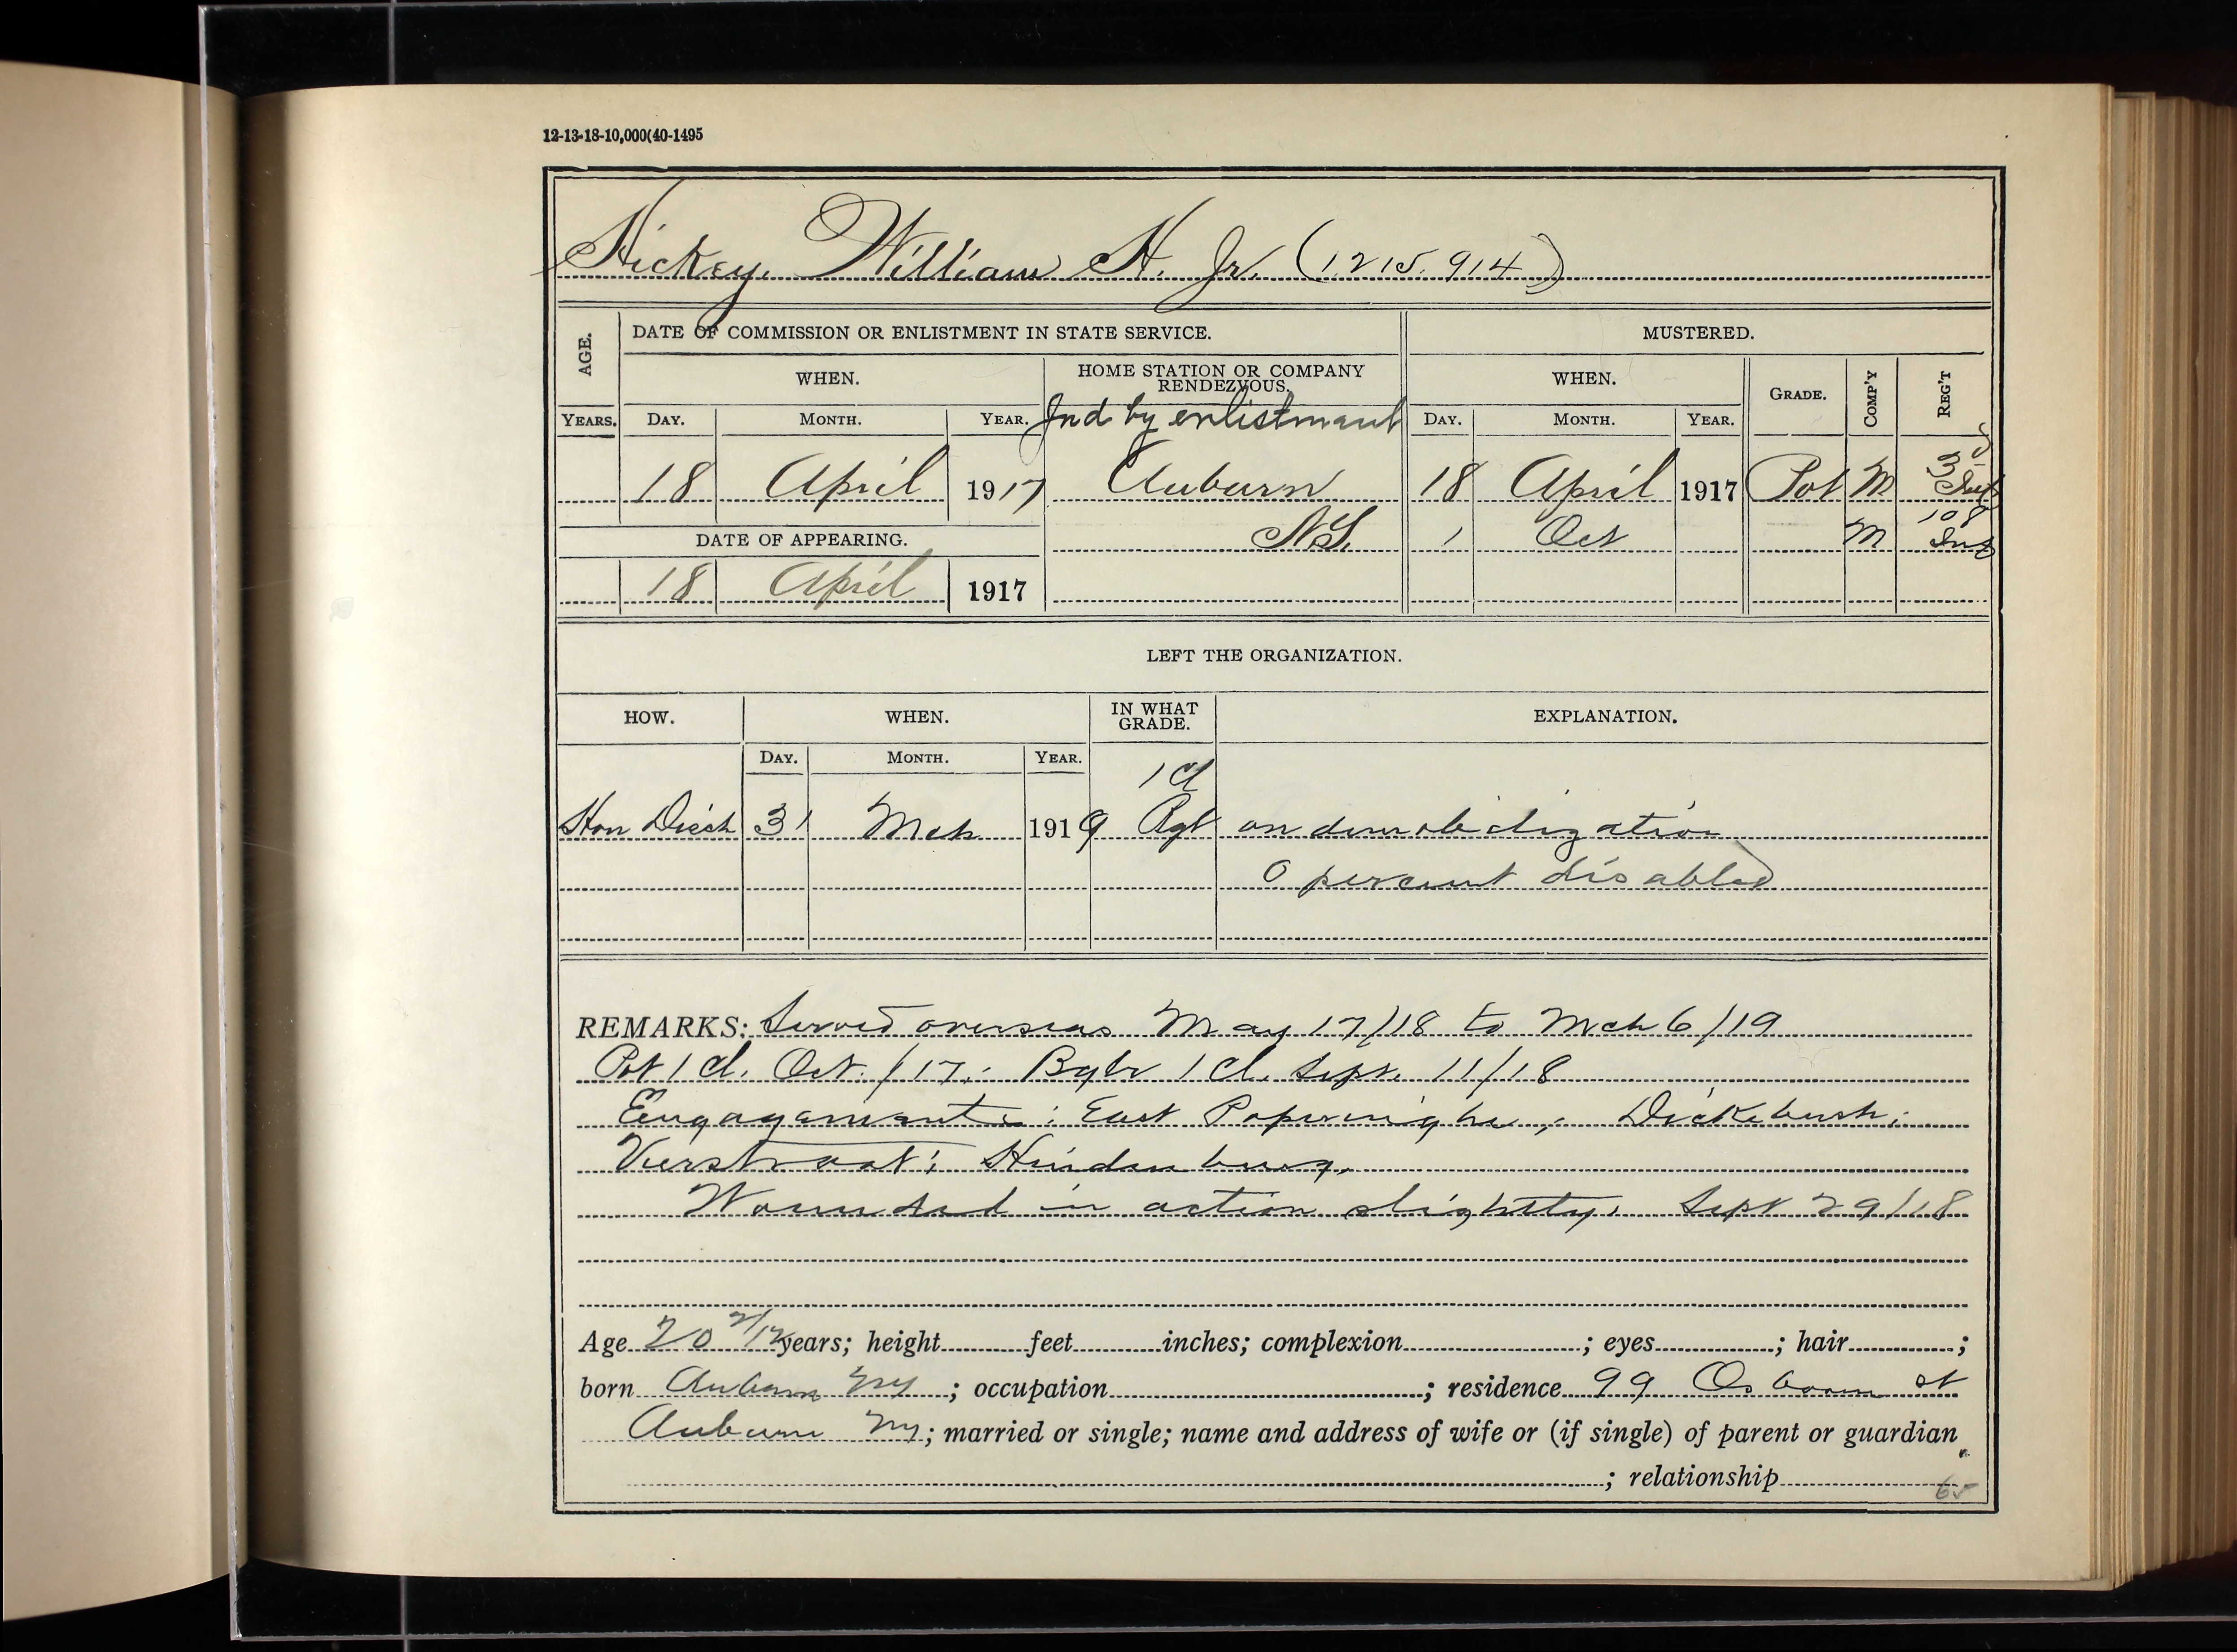 12-13-18-10,000(40-1495
Hickey, William H. Jr. (1,215,914)
AGE.
DATE OF COMMISSION OR ENLISTMENT IN STATE SERVICE.
MUSTERED.
WHEN.
HOME STATION OR COMPANY RENDEZVOUS.
WHEN.
GRADE.
COMP'Y
REG'T
YEARS.
DAY.
MONTH.
YEAR.
Ind by enlistment
DAY.
MONTH.
YEAR.
18 April 1917 Auburn 18 April 1917 Pvt M 3 Inf
N.G. 1 Oct M 108 Inf
DATE OF APPEARING.
18 April 1917
LEFT THE ORGANIZATION.
HOW.
WHEN.
IN WHAT GRADE.
EXPLANATION.
DAY.
MONTH.
YEAR.
1 cl
Hon Disch 31 Mch 1919 on demobilization
0 percent disabled
REMARKS: Served overseas May 17/18 to Mch 6/19
Pvt 1 cl. Oct. /17; Bglr 1 cl. Sept. 11/18
Engagements: East Poperinghe; Dickebush;
Vierstraat; Hindenburg.
Wounded in action slightly. Sept 29/18
Age 20 2/12 years; height feet inches; complexion ; eyes ; hair ;
born Auburn NY ; occupation ; residence 99 Osborne st
Auburn NY; married or single; name and address of wife or (if single) of parent or guardian
; relationship